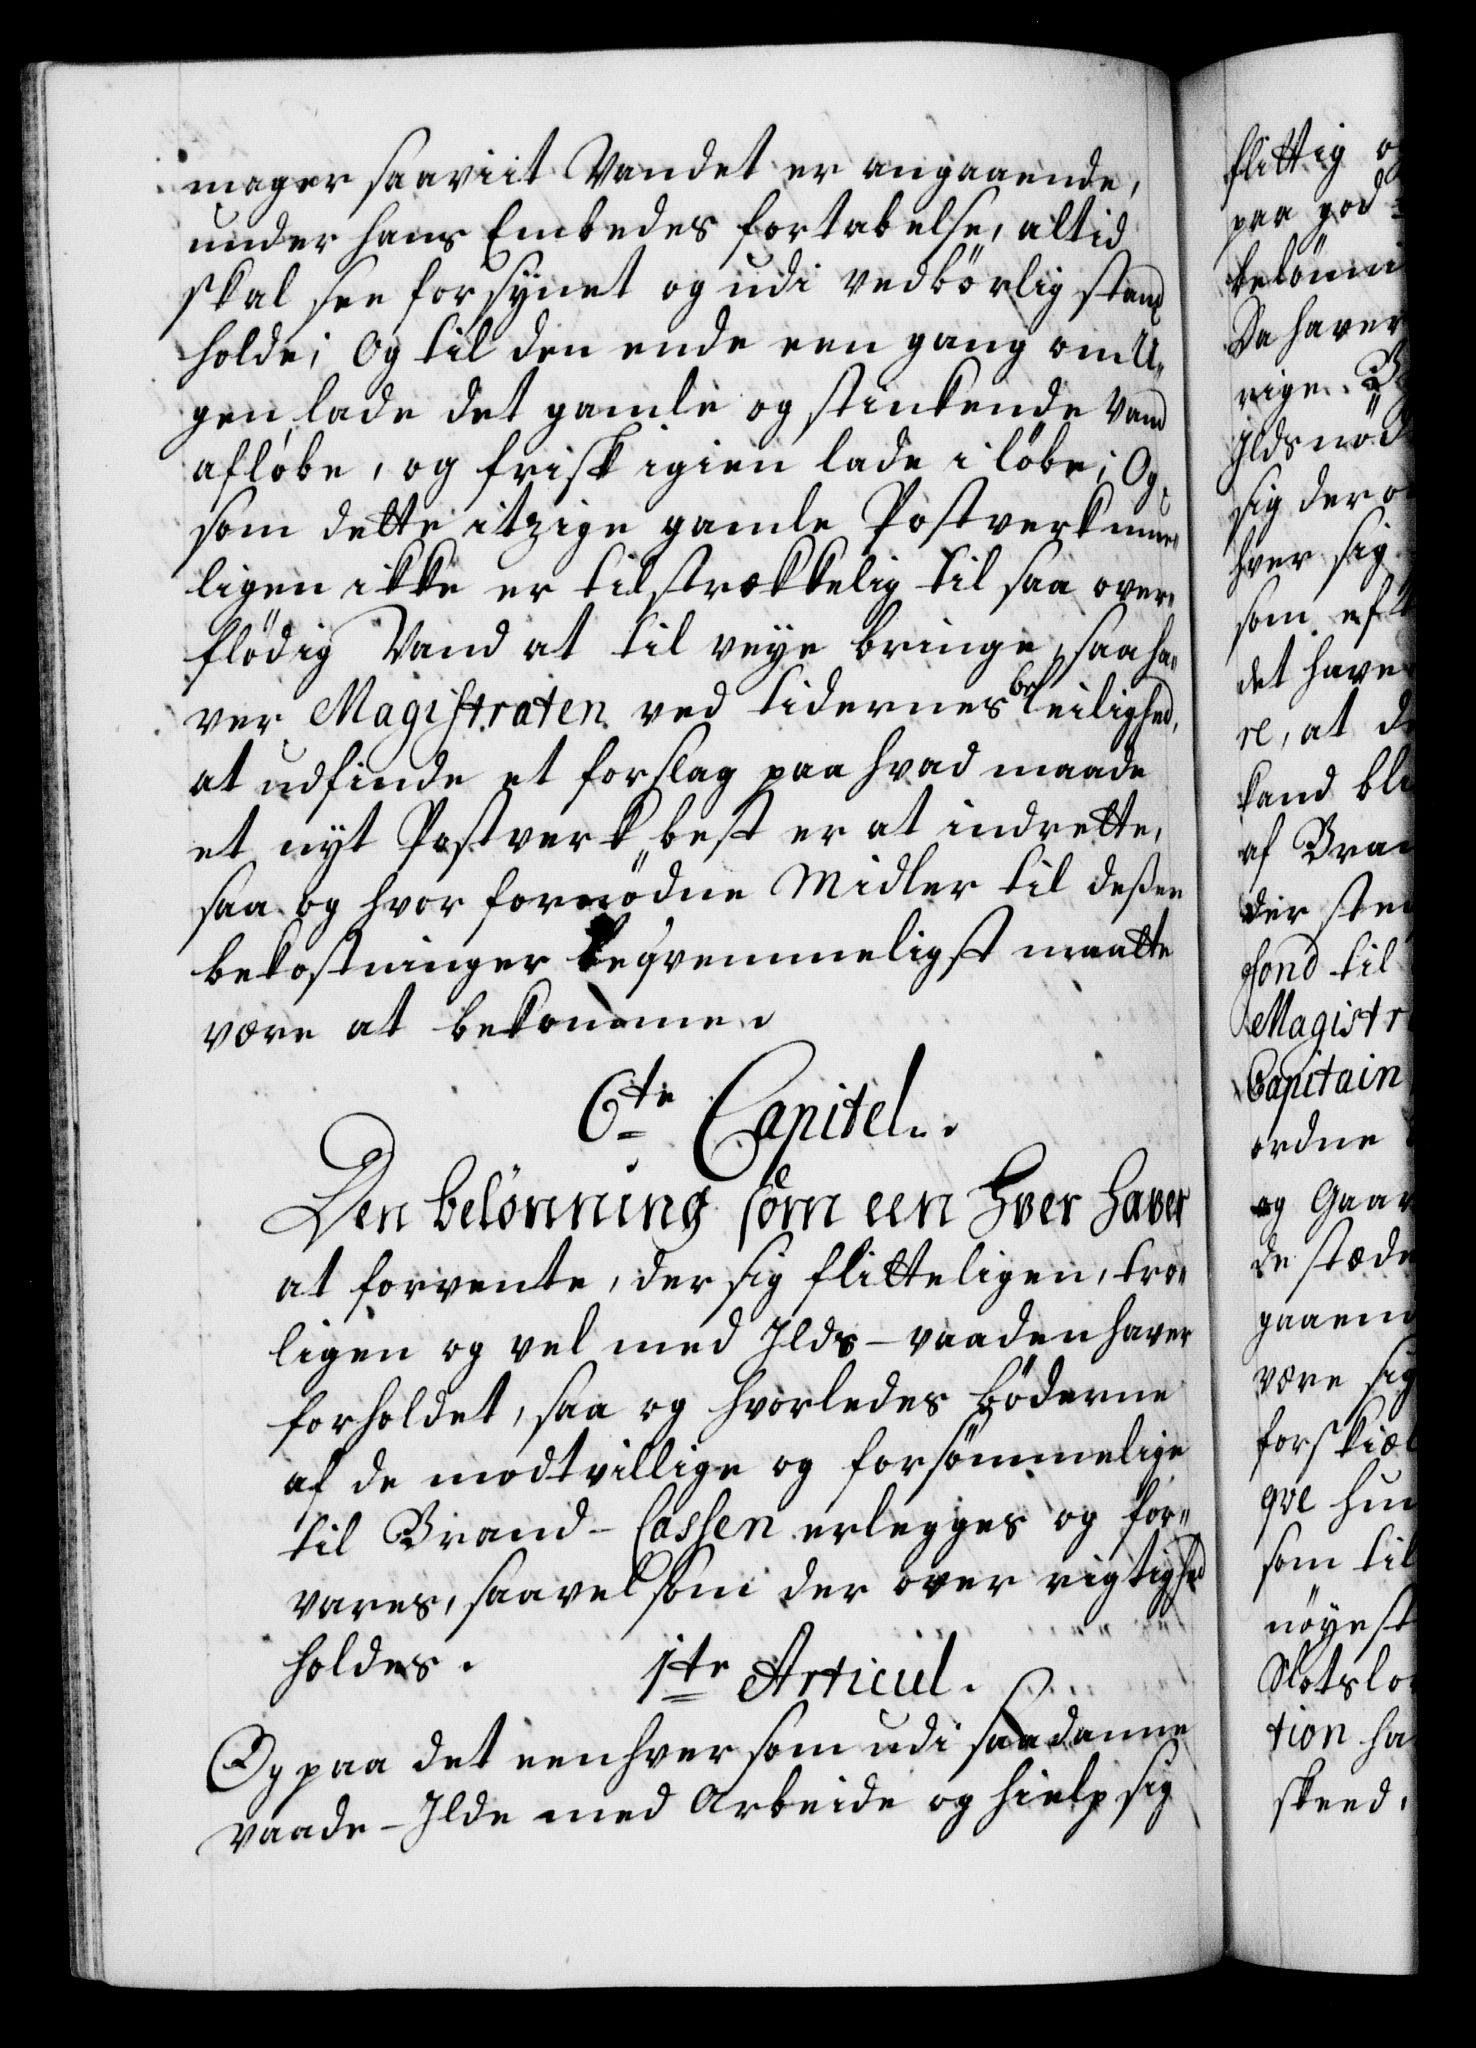 mager saaviit Vandet er angaaende,
under hans Embedes fortabelse, altid
skal see forsynet og udi vedbörlig stand
holde; Og til den ende een gang om U„
gen, lade det gamle og stinkende Vand
afløbe, og frisk igien lade i löbe; Og
som dette itzige gamle Postverk
ligen ikke er tilstrækkelig til saa over„
flödig Vand at til veye bringe, saa ha„
ver Magistraten ved tidernes beleilighed,
at udfinde et forslag paa hvad maade
et nyt Postverk best er at indrette,
saa og hvor fornödne Midler til deßen
bekostninger beqvemmeligst maatte
være at bekomme.
6te Capitel.
Den belönning som een hver haver
at forvente, der sig flitteligen, tro„
ligen og vel med Ilds-vaaden haver
forholdet, saa og hvorledes böderne
af de modtvillige og forsömmelige
til Brand-Cassen erlegges og for„
vares, saavel som der over rigtighed
holdes.
1te Articul.
Og paa det eenhver som udi saadanne
vaade-Ilde med Arbeide og hielp sig
flittig
paa god
belönni
Da haver
rige
Ilds nöd
sig der
hver sig
som eft
det have
re, at d
kand bli
af Bran
der sten
fond til
Magistr
Capitain
ordne
og Gaar
de stæde
gaaend
være sig
forskiæl
qve hu
som til
nöyest
Slotslo
tion ha
skeed,